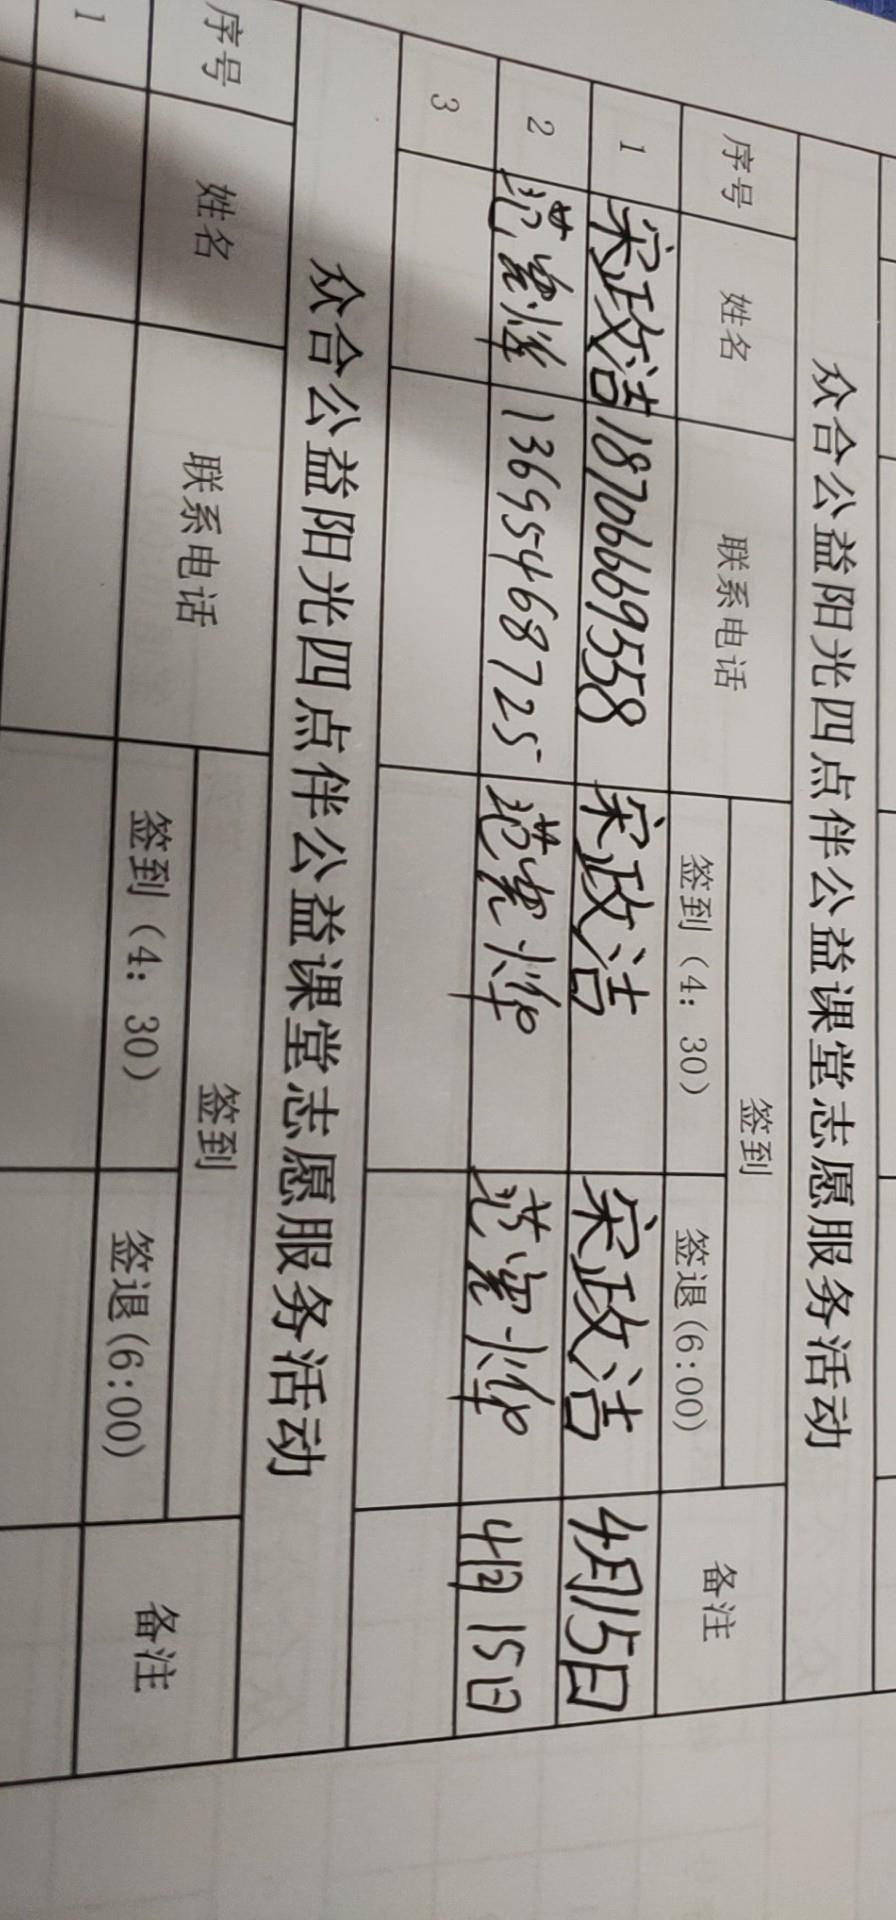 众合公益阳光四点伴公益课堂志愿服务活动
序号 姓名 联系电话 签到 备注
签到（4：30） 签退(6:00)
1 宋政洁 18706669558 宋政洁 宋政洁 4月15日
2 范 13695468725 范 范 4月15日
3
众合公益阳光四点伴公益课堂志愿服务活动
序号 姓名 联系电话 签到 备注
签到（4：30） 签退(6:00)
1